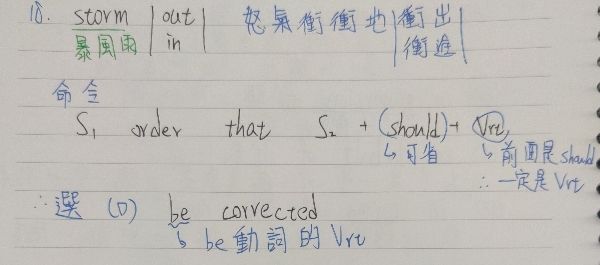 18. storm | out | 怒氣衝衝地 | 衝出
暴風雨 | in | | 衝進 |
命令
S₁ order that S₂ + (should) + Vrt
↳ 可省 ↳ 前面是 should
∴ 一定是 Vrt
∴ 選 (D) be corrected
↳ be 動詞的 Vrt